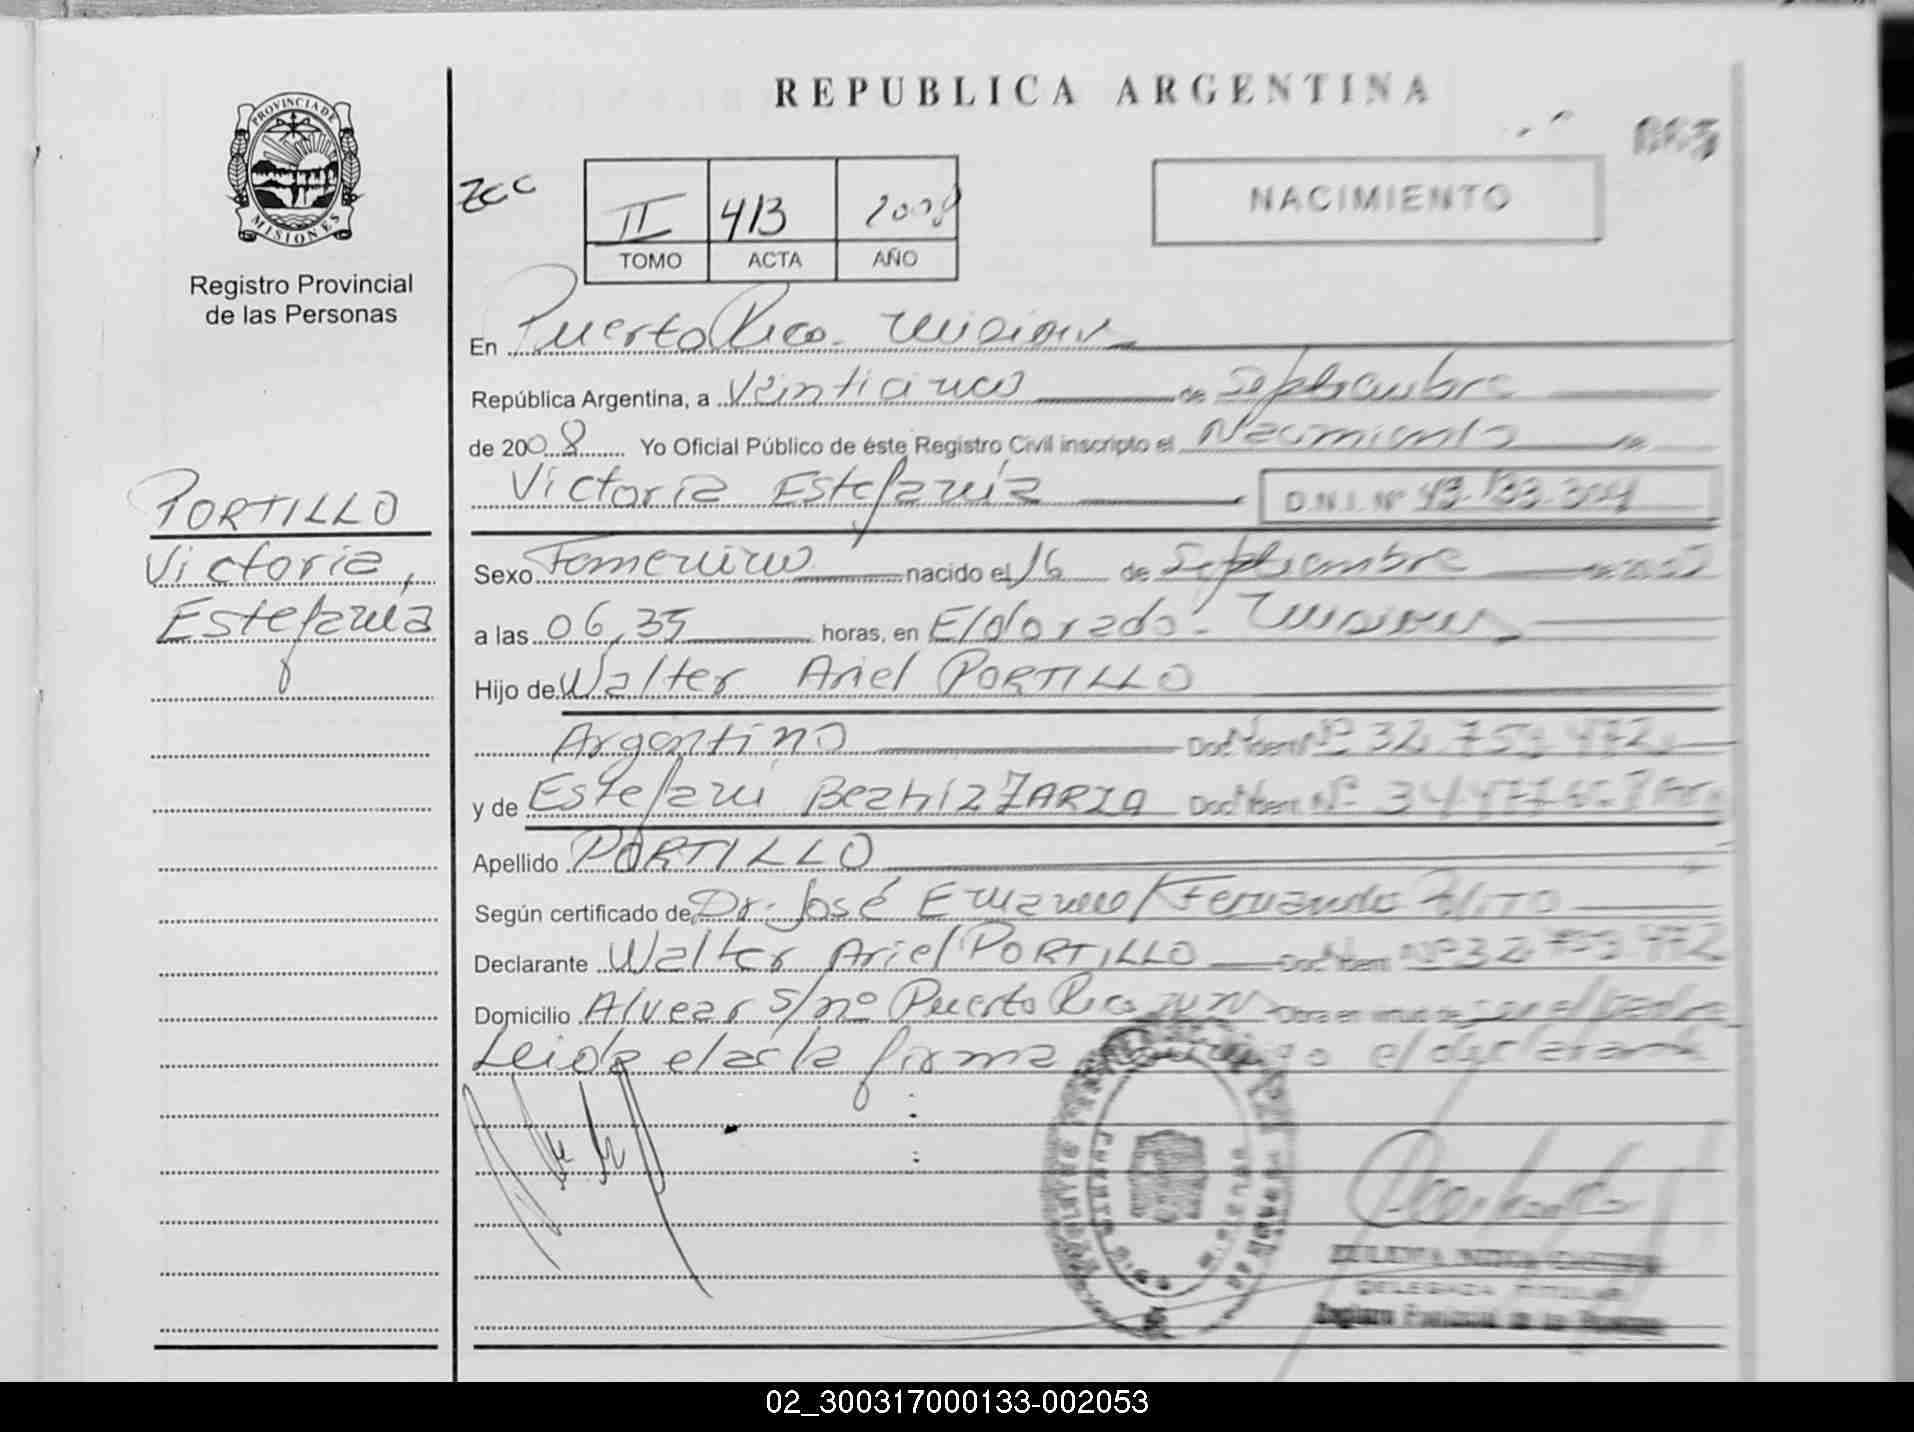 REPUBLICA ARGENTINA
PROVINCIA DE
MISIONES
Registro Provincial
de las Personas
zcc
II 413 2008
TOMO ACTA AÑO
NACIMIENTO
En Puerto Rico - Misiones
República Argentina, a Veinticinco de Septiembre
de 2008 Yo Oficial Público de éste Registro Civil inscripto el Nacimiento de
Victoria Estefanía
D.N.I. Nº
PORTILLO
Victoria,
Estefanía
Sexo Femenino nacido el 16 de Septiembre
a las 06,35 horas, en Eldorado - Misiones
Hijo de Walter Ariel PORTILLO
Argentino Doc. Iden. Nº 32.759.472
y de Estefani Beatriz ZARZA Doc. Iden. Nº
Apellido PORTILLO
Según certificado de Dr. José Fernando
Declarante Walter Ariel PORTILLO Doc. Iden. Nº 32.759.472
Domicilio Alvear s/nº Puerto Rico Obra en virtud de ser el padre
Leida el acta firma conmigo el declarante
PUERTO RICO
MISIONES
DELEGADA TITULAR
Registro Provincial de las Personas
02_300317000133-002053